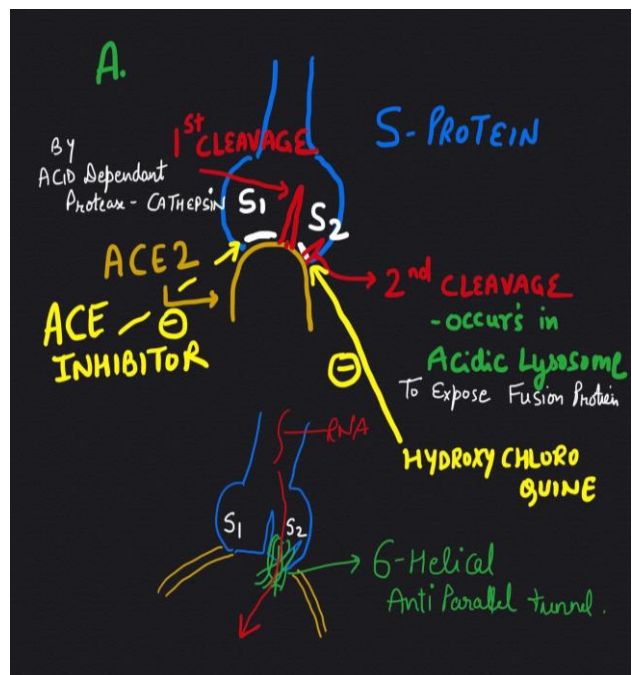 A.
S-PROTEIN
1st CLEAVAGE
BY
ACID Dependant
Protease - CATHEPSIN
S1
S2
ACE2
ACE
INHIBITOR
2nd CLEAVAGE
- occurs in
Acidic Lysosome
To Expose Fusion Protein
HYDROXY CHLORO
QUINE
RNA
S1
S2
6-Helical
Anti Parallel tunnel.